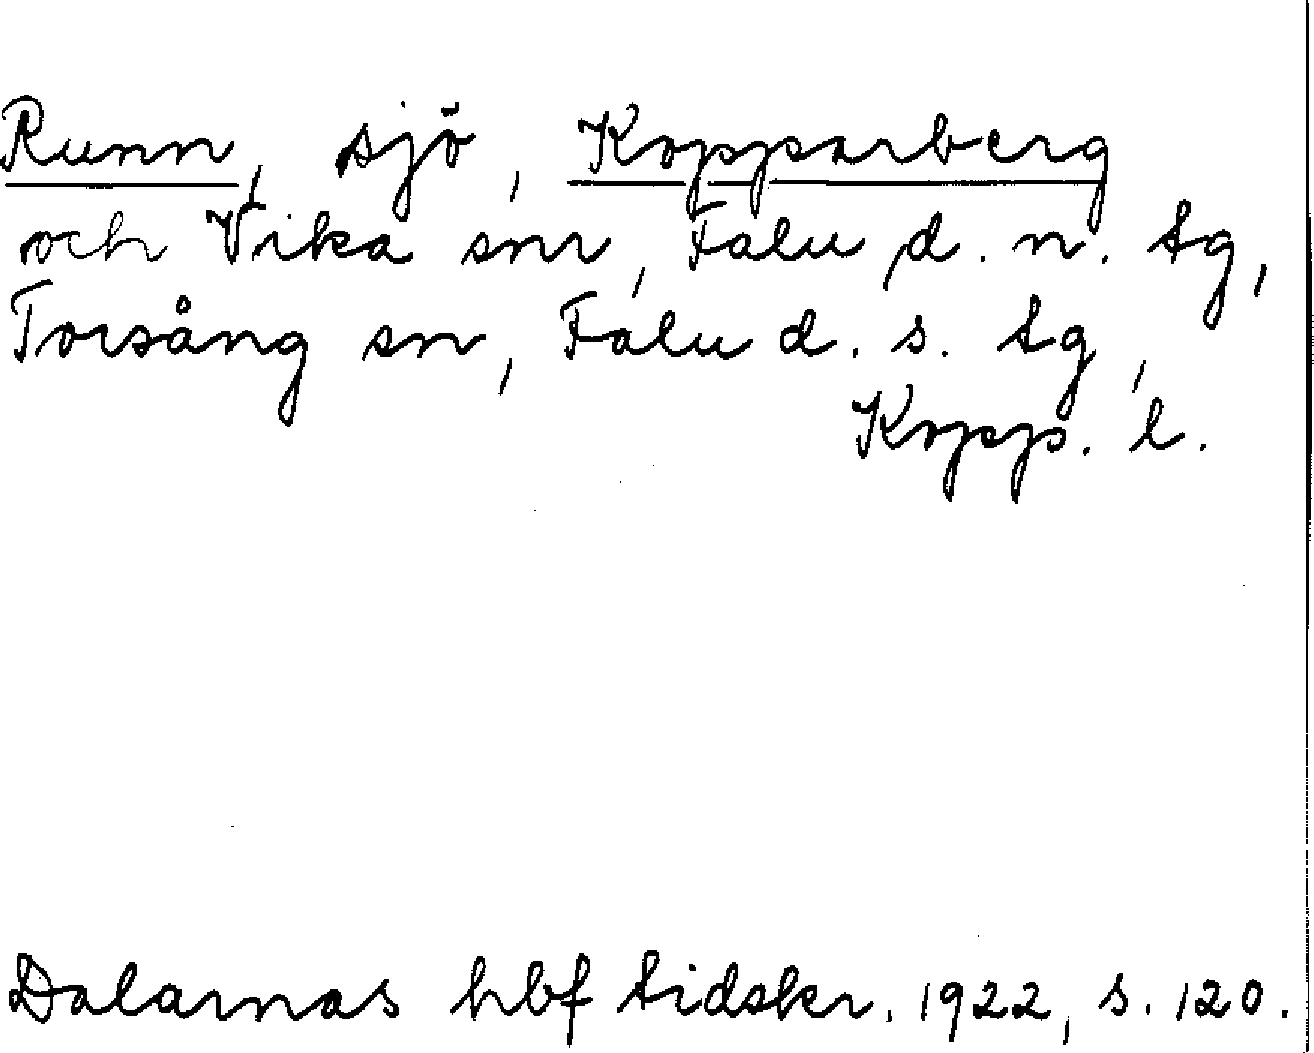 Runn, sjö, Kopparberg
och Vika snr, Falu d. n. tg,
Torsång sn, Falu d. s. tg,
Kopp. l.
Dalarnas hbf tidskr. 1922, s. 120.